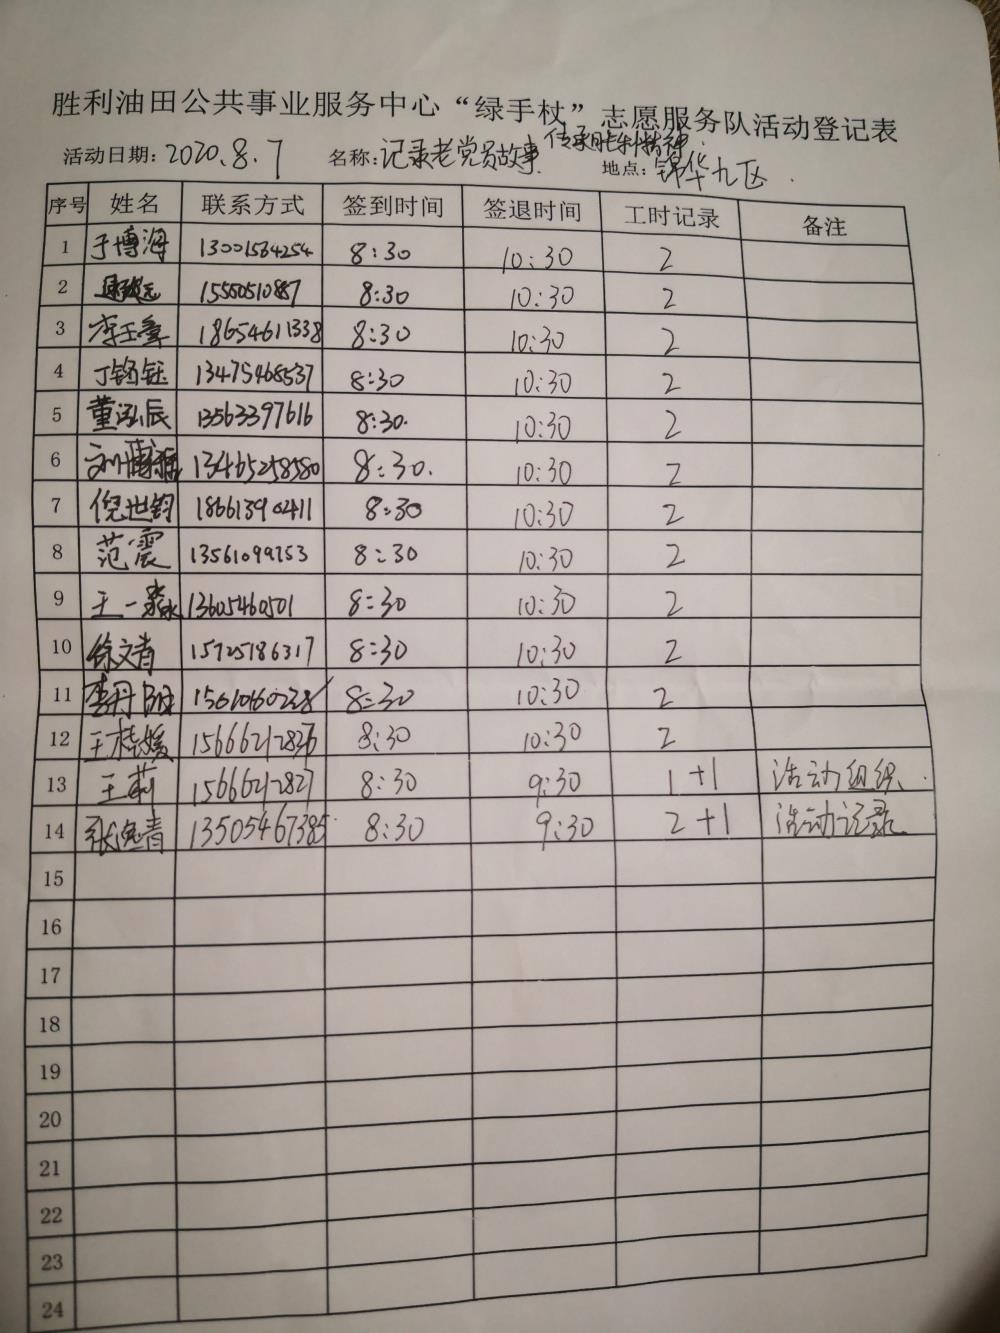 胜利油田公共事业服务中心“绿手杖”志愿服务队活动登记表
活动日期：2020.8.7 名称：记录老党员故事 传承胜利精神 地点：锦华九区
序号 姓名 联系方式 签到时间 签退时间 工时记录 备注
1 于博海 13001584254 8:30 10:30 2
2 15550510887 8:30 10:30 2
3 18654611338 8:30 10:30 2
4 丁钰 13475468537 8:30 10:30 2
5 董泓辰 13563397616 8:30. 10:30 2
6 13465258580 8:30. 10:30 2
7 倪世钧 18661390411 8:30 10:30 2
8 范震 13561099753 8:30 10:30 2
9 王一淼 13605460501 8:30 10:30 2
10 徐文肖 15725186317 8:30 10:30 2
11 李丹阳 15610160238 8:30 10:30 2
12 王桂媛 15666212826 8:30 10:30 2
13 王莉 15666212827 8:30 9:30 1+1 活动组织
14 张逸青 13505467385 8:30 9:30 2+1 活动记录
15
16
17
18
19
20
21
22
23
24